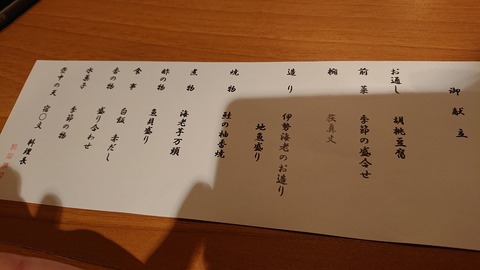 御献立
お通し 胡桃豆腐
前菜 季節の盛合せ
椀 真丈
造り 伊勢海老のお造り
地魚盛り
焼物 鮭の柚香焼
煮物 海老芋万頭
酢の物 魚貝盛り
食事 白飯 赤だし
香の物 盛り合わせ
水菓子 季節の物
壺中の天 宿〇文 料理長